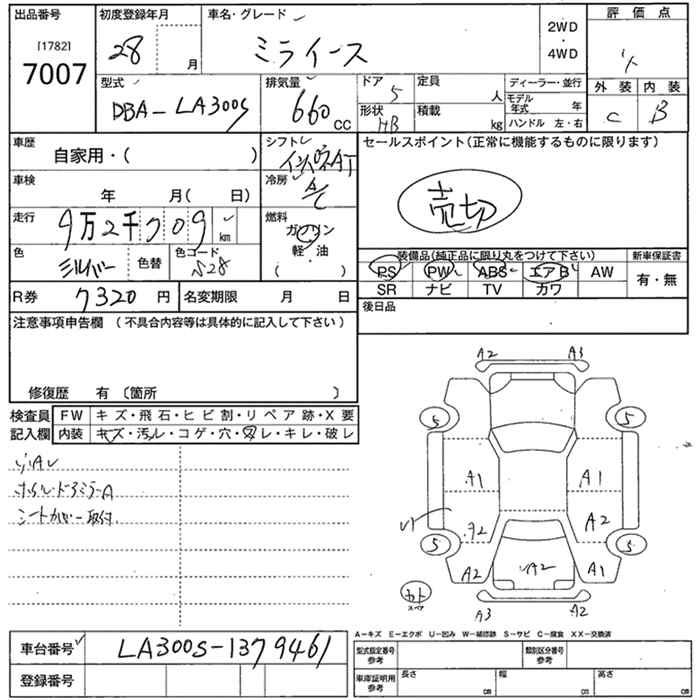 出品番号
[1782]
7007
初度登録年月
28
月
車名・グレード
ミライース
2WD
・
4WD
評価点
外装 内装
C B
型式
DBA-LA300S
排気量
660
cc
ドア
5
定員
人
形状
HB
積載
kg
ディーラー・並行
モデル
年式 年
ハンドル 左・右
車歴
自家用・( )
シフト
インパネAT
セールスポイント(正常に機能するものに限ります)
売切
車検
年 月( 日)
冷房
A/C
走行
9万2千709
km
燃料
ガソリン
軽・油
( )
色
シルバー
色替
色コード
S28
装備品(純正品に限り丸をつけて下さい)
新車保証書
PS PW ABS エアB AW
SR ナビ TV カワ
有・無
R券
7320 円
名変期限 月 日
後日品
注意事項申告欄 (不具合内容等は具体的に記入して下さい)
修復歴 有〔箇所 〕
検査員
記入欄
FW キズ・飛石・ヒビ割・リペア跡・X要
内装 キズ・汚レ・コゲ・穴・スレ・キレ・破レ
ホイル・ドアミラーA
シートカバー取付
A2 A3
5 5
A1 A1
A2
A2
5 5
A2 A2 A1
カト
スペア
A3 A2
A-キズ E-エクボ U-凹み W-補修跡 S-サビ C-腐食 XX-交換済
車台番号
LA300S-1379461
登録番号
型式指定番号
参考
類別区分番号
参考
車庫証明用
参考
長さ
cm
幅
cm
高さ
cm